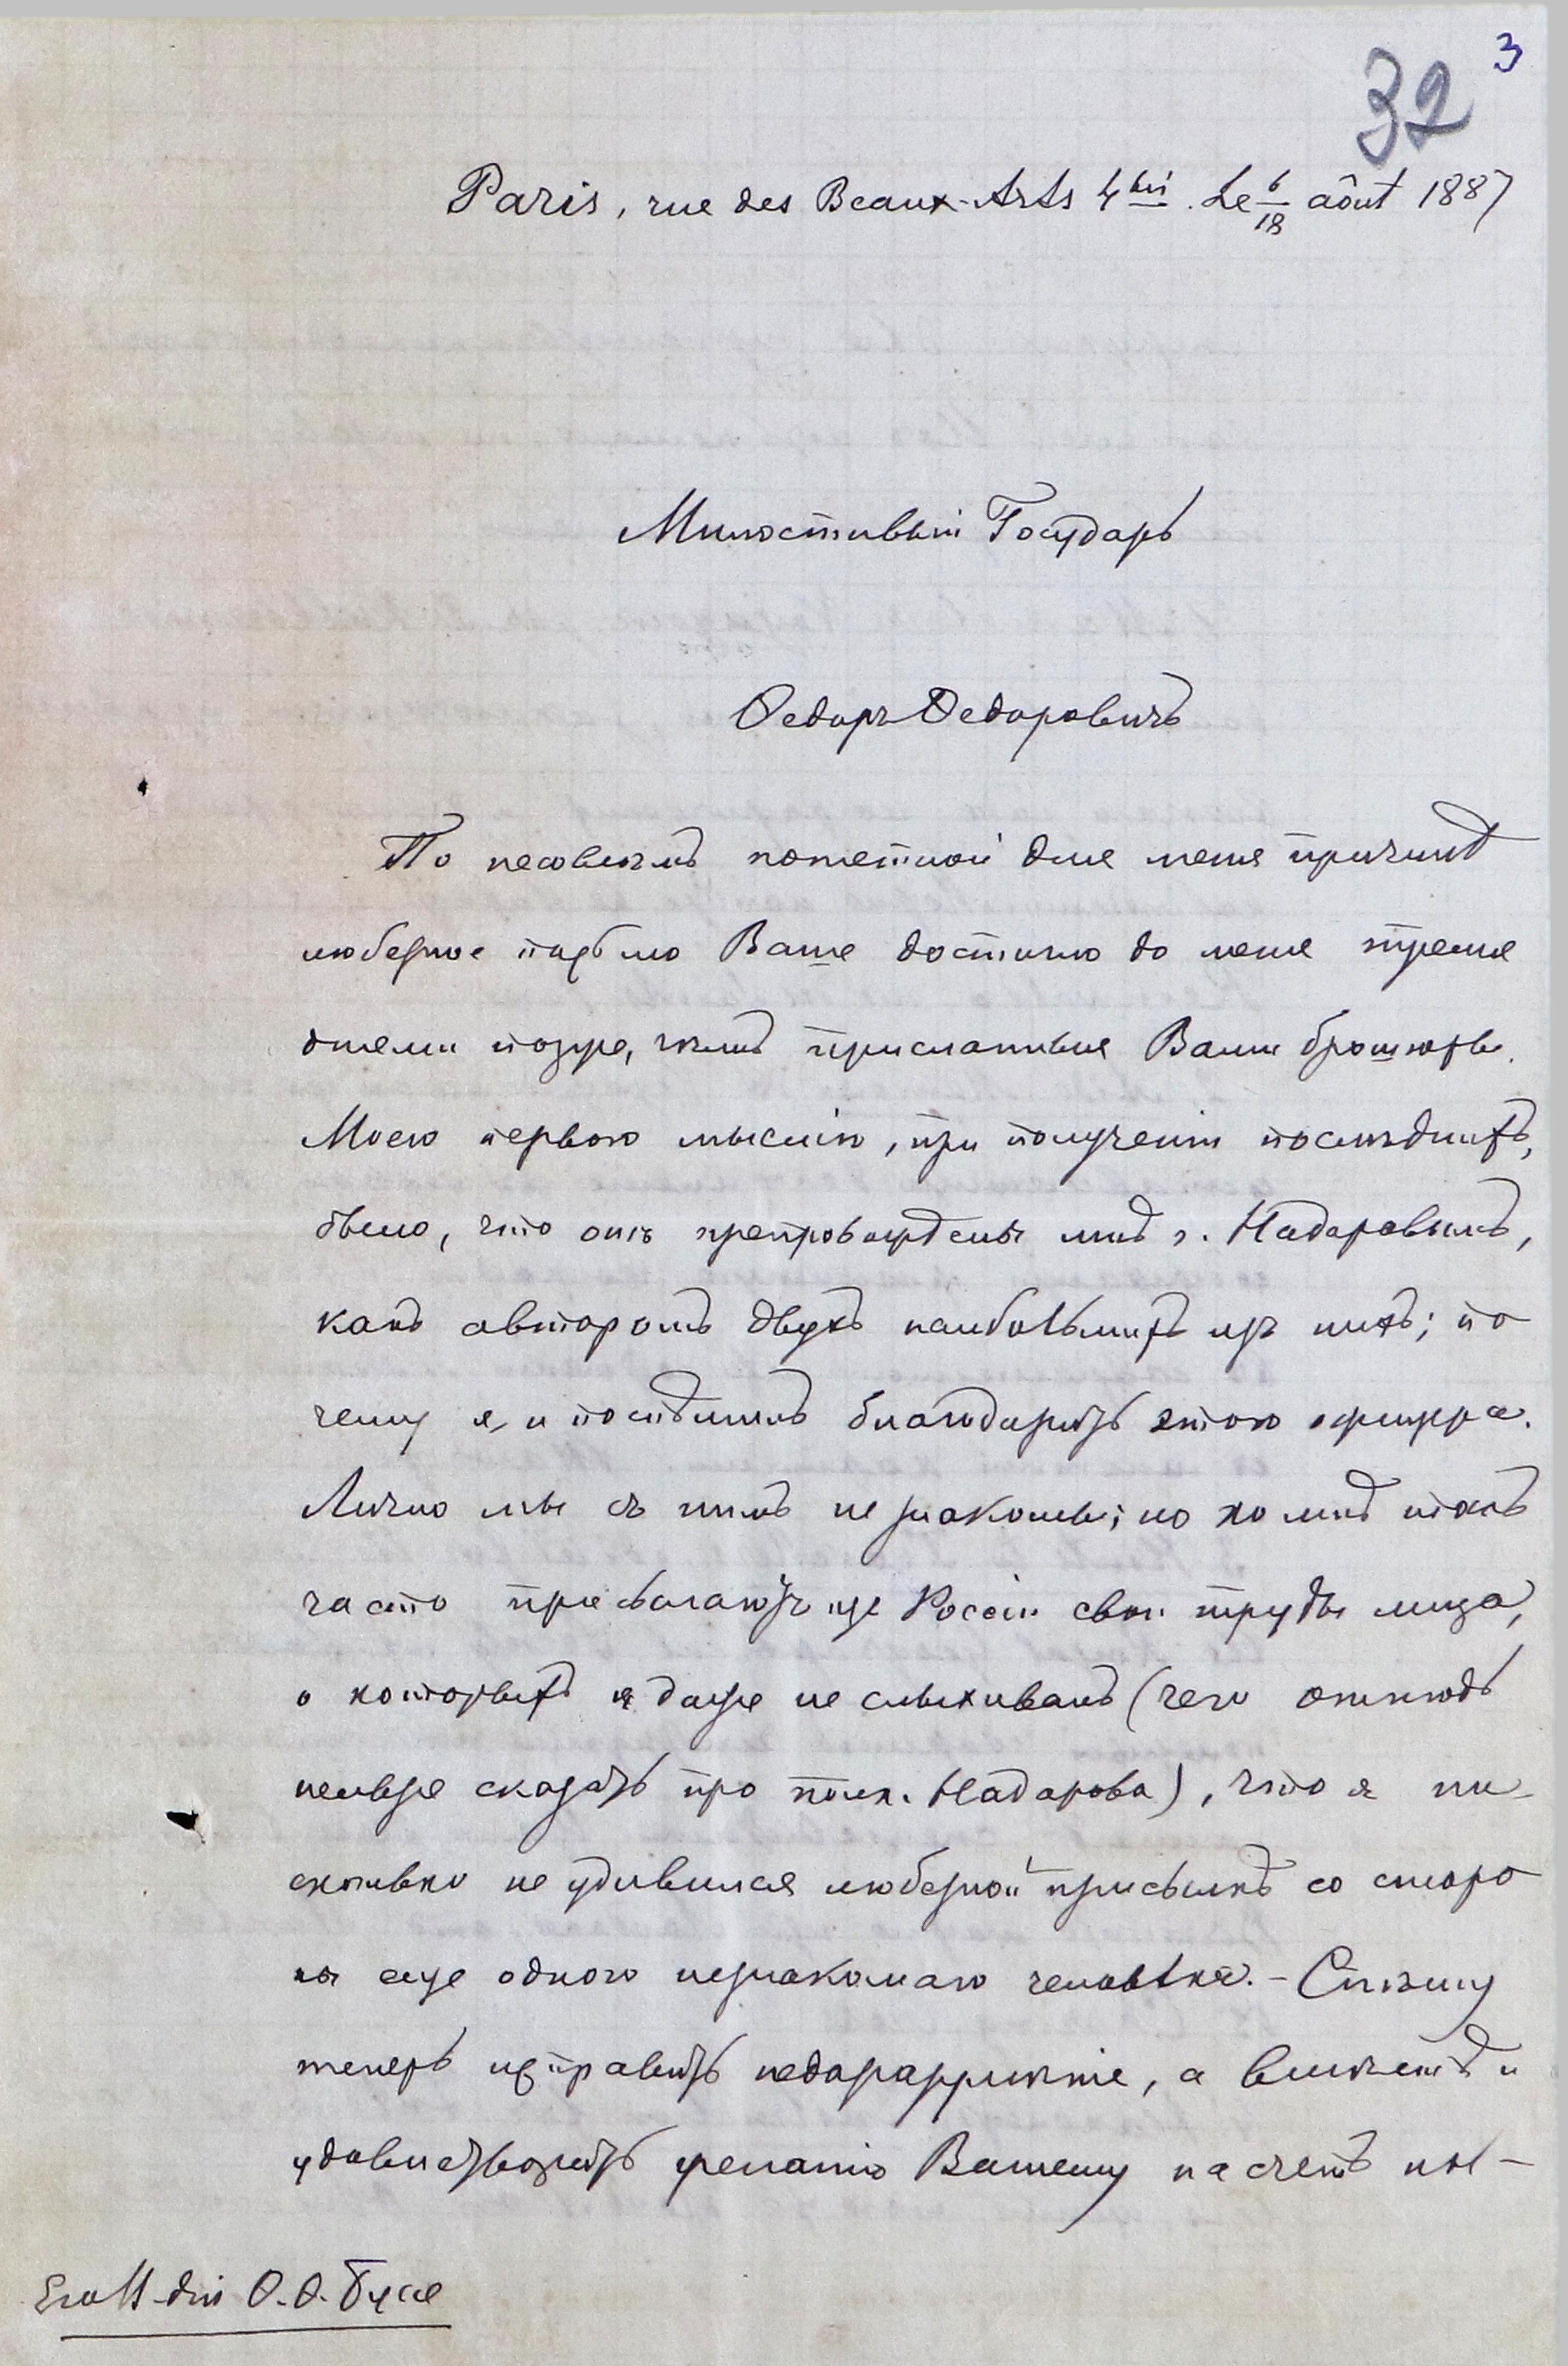 3
32
Paris, rue des Beaux-Arts 4 bis. Le 6/18 août 1887
Милостивый Государь
Ѳедоръ Ѳедоровичъ
По несовсѣмъ понятной для меня причинѣ
любезное письмо Ваше достигло до меня тремя
днями позже, чѣмъ присланныя Вами брошюры.
Моею первою мыслію, при полученіи послѣднихъ,
было, что онѣ препровождены мнѣ г. Надаровымъ,
какъ авторомъ двухъ наибольшихъ изъ нихъ; по
чему я и поспѣшилъ благодарить этого офицера.
Лично мы съ нимъ не знакомы; но ко мнѣ такъ
часто присылаютъ изъ Россіи свои труды лица,
о которыхъ я даже не слыхивалъ (чего отнюдь
нельзя сказать про полк. Надарова), что я ни-
сколько не удивился любезной присылкѣ со сторо
ны еще одного незнакомаго человѣка. - Спѣшу
теперь исправить недоразумѣніе, а вмѣстѣ и
удовлетворить желанію Вашему насчетъ мы-
Его В-дію Ѳ. Ѳ. Буссе